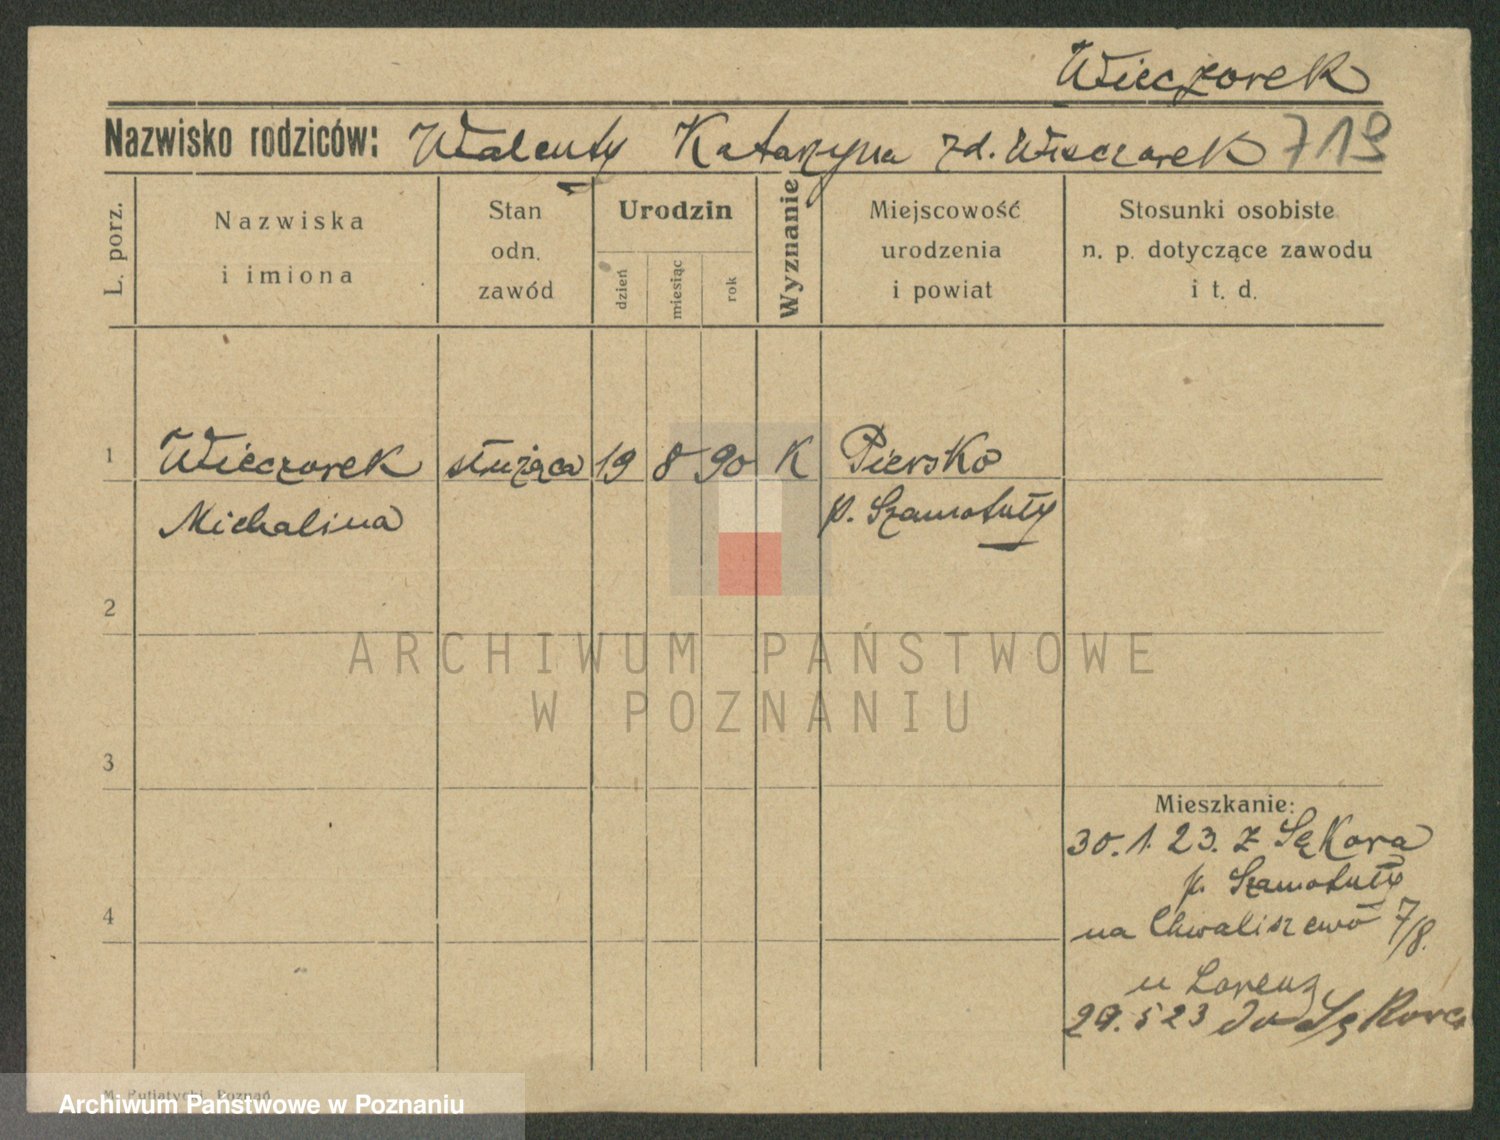 Wieczorek
Nazwisko rodziców: Walenty Katarzyna zd. Wieczorek 719
L. porz.
Nazwiska
i imiona
Stan
odn.
zawód
Urodzin
dzień
miesiąc
rok
Wyznanie
Miejscowość
urodzenia
i powiat
Stosunki osobiste
n. p. dotyczące zawodu
i t. d.
1 Wieczorek służąca 19 8 90 K Piersko
Michalina p. Szamotuły
2
3
4
Mieszkanie:
30.1.23. z Sękowa
p. Szamotuły
na Chwaliszewo 7/8.
u Lorenz
29.5 23 do
M. Putiatycki, Poznań
ARCHIWUM PAŃSTWOWE
W POZNANIU
Archiwum Państwowe w Poznaniu